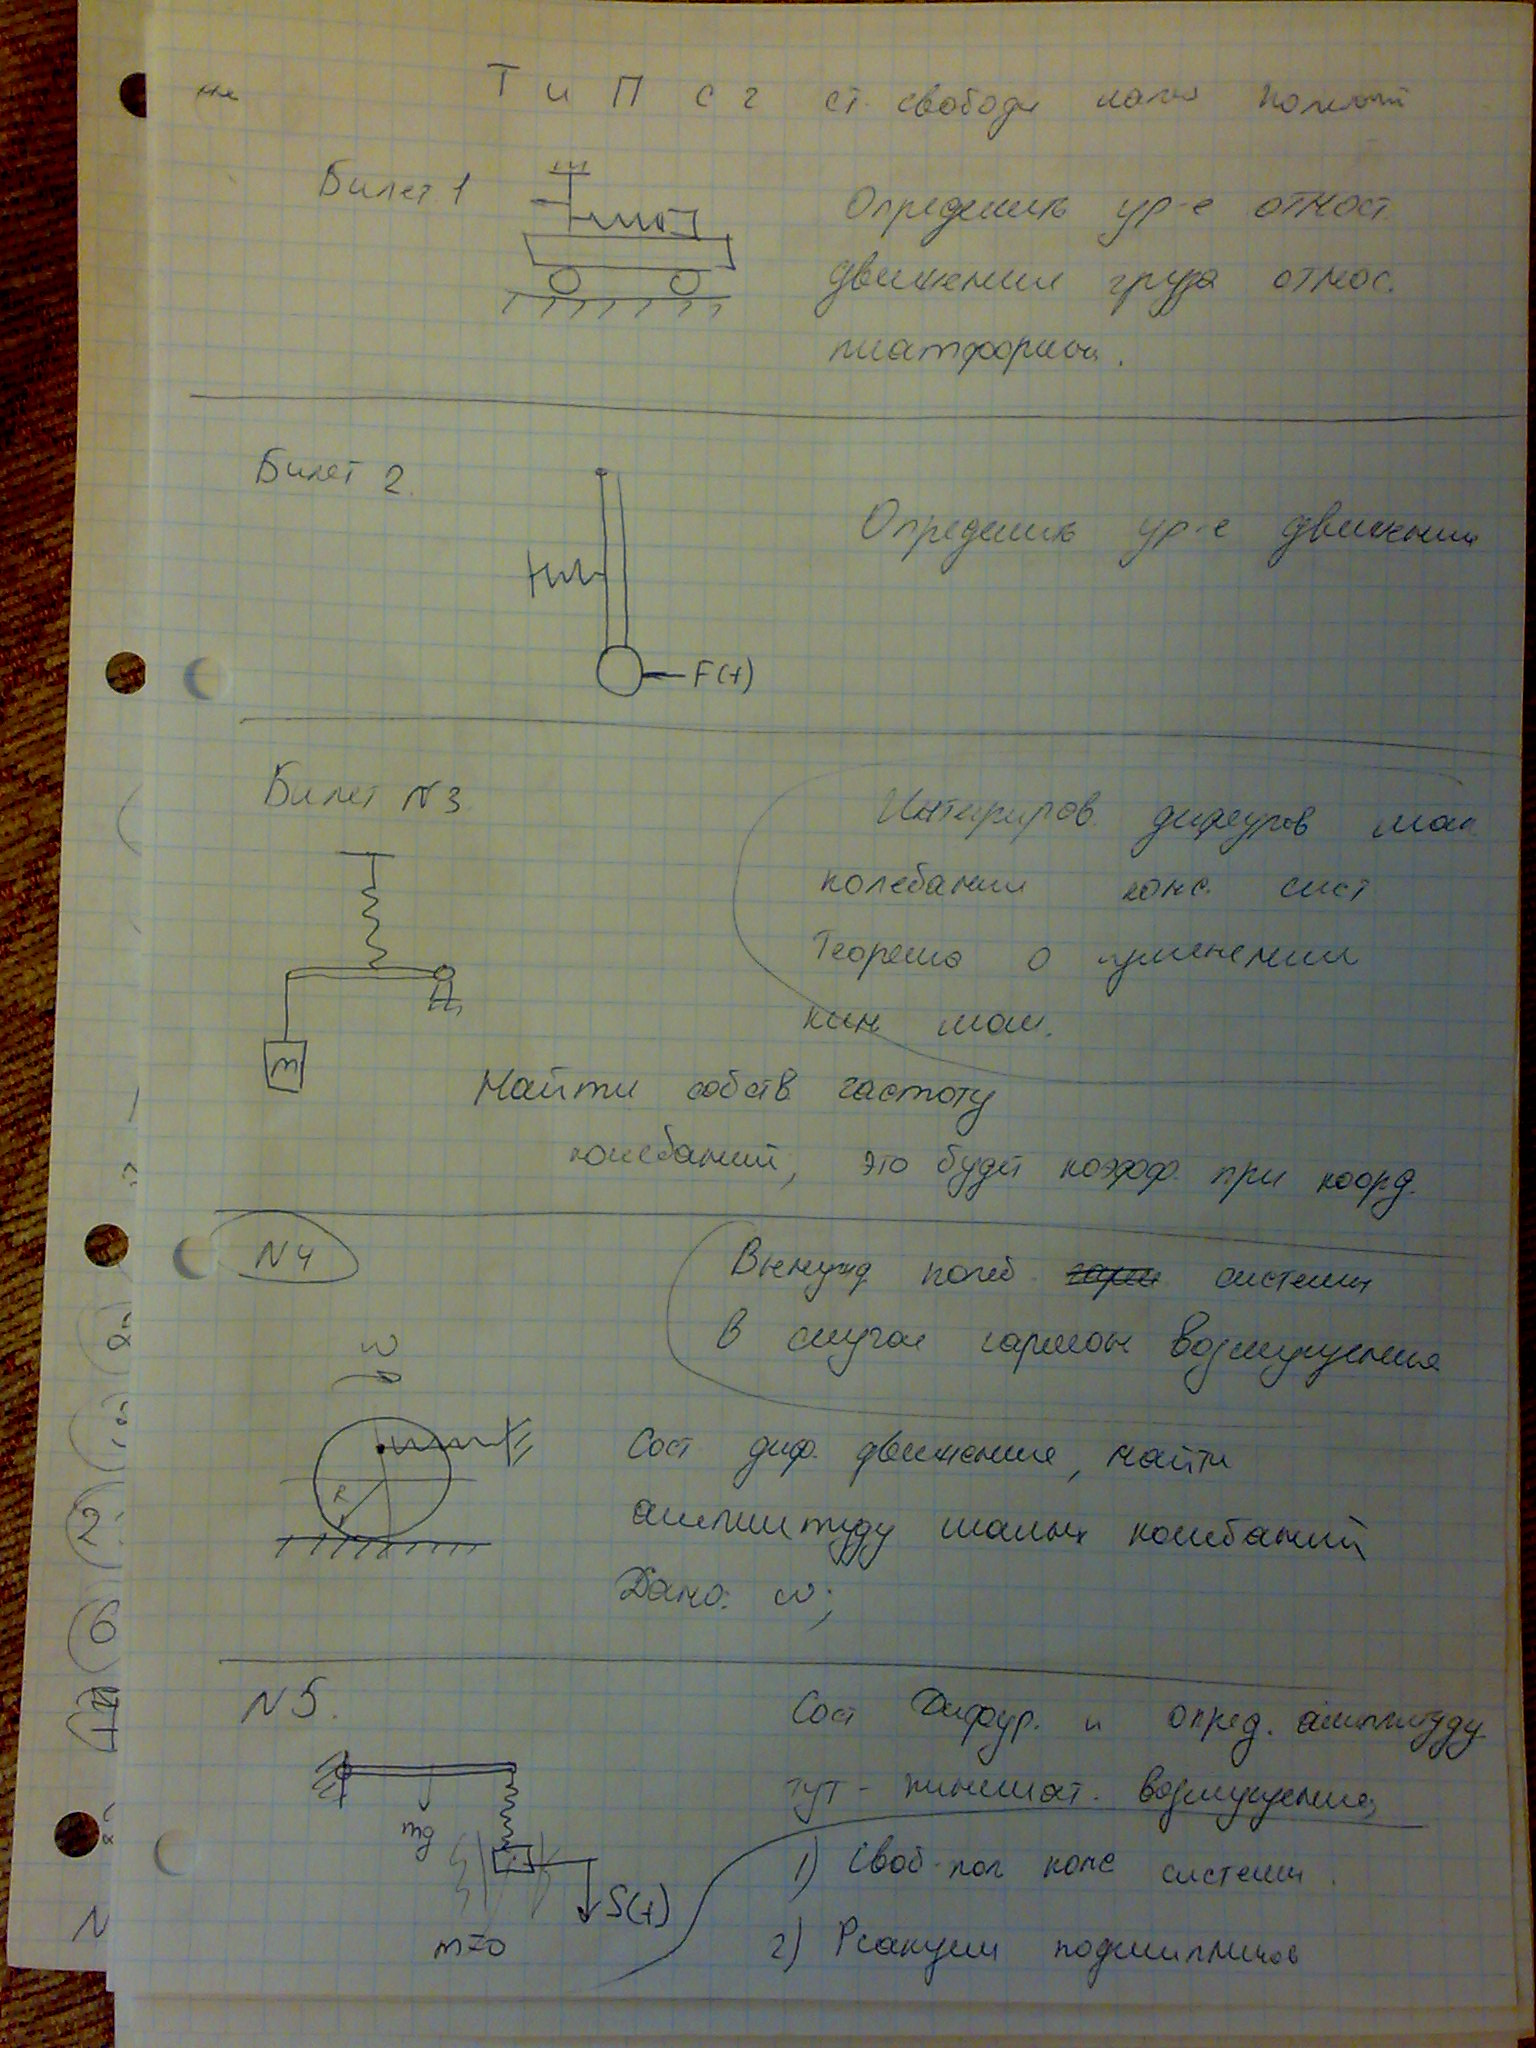 не Т и П с 2 ст. свободы
Билет 1
Определить ур-е относ.
движения груза относ.
платформы.
Билет 2.
Определить ур-е движения
F(t)
Билет N3
Интегриров. дифуров мал
колебании конс. сист
Теорема о изменении
кин мом.
m
Найти собств частоту
колебаний, это будет коэфф. при коорд.
N4
Вынужд колеб системы
в случае гармон возмущения
ω
R
Сост диф. движения, найти
амплитуду малых колебаний
Дано: ω;
N5.
Сост Дифур. и опред. амплитуду
тут - кинемат. возмущение,
mg
1) Своб кол конс системы.
S(t)
m=0
2) Реакции подшипников
2
6
N